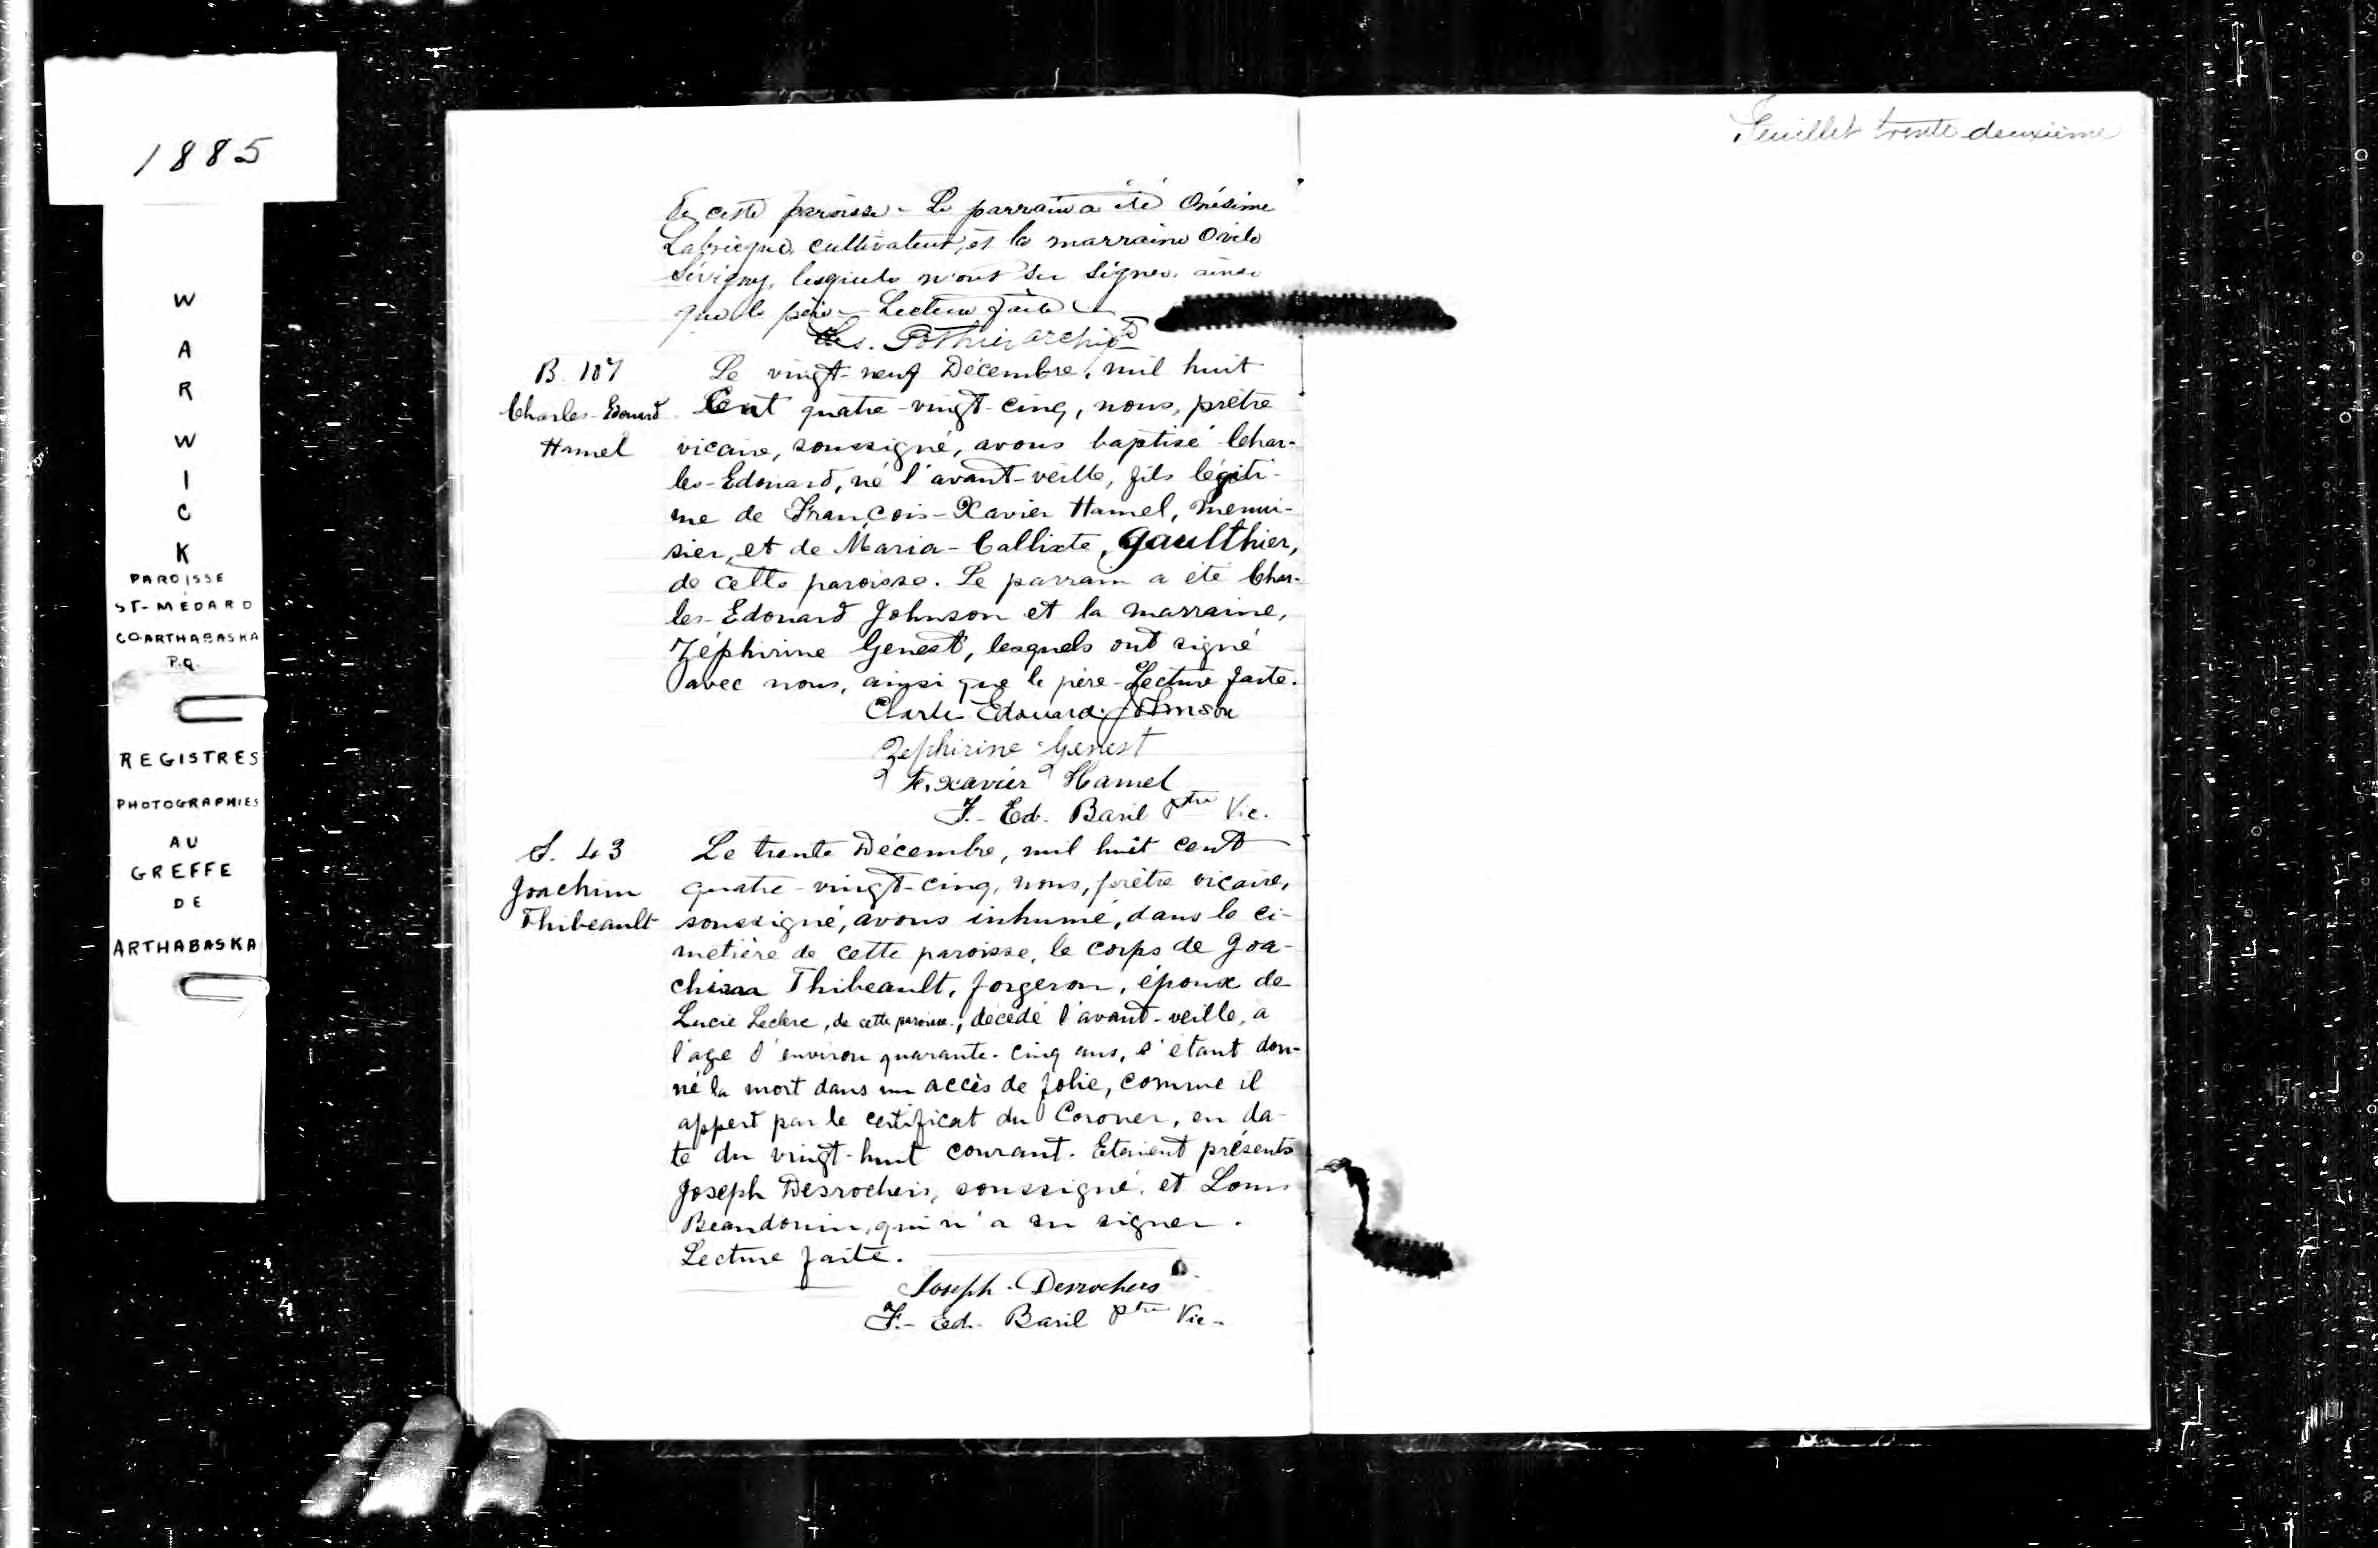 1885
W
A
R
W
I
C
K
PAROISSE
ST-MÉDARD
CO ARTHABASKA
P.Q.
REGISTRES
PHOTOGRAPHIES
AU
GREFFE
DE
ARTHABASKA
de cette paroisse - Le parrain a été Onésime
Labrecque, cultivateur, et la marraine
Sévigny, lesquels n'ont su signer, ainsi
que le père - Lecture faite
Pothier archip
B. 107
Charles-Edouard
Hamel
Le vingt-neuf Décembre, mil huit
Cent quatre-vingt-cinq, nous, prêtre
vicaire, soussigné, avons baptisé Char-
les-Edouard, né l'avant-veille, fils légiti-
me de François-Xavier Hamel, menui-
sier, et de Maria-Callixte, Gaulthier,
de cette paroisse. Le parrain a été Char-
les-Edouard Johnson et la marraine,
Zéphirine Genest, lesquels ont signé
avec nous, ainsi que le père - Lecture faite.
Charles Edouard Johnson
Zephirine Genest
F. Xavier Hamel
F.- Ed. Baril Ptre Vic.
S. 43
Joachim
Thibeault
Le trente Décembre, mil huit cent
quatre-vingt-cinq, nous, prêtre vicaire,
soussigné, avons inhumé, dans le ci-
metière de cette paroisse, le corps de Joa-
chim Thibeault, forgeron, époux de
Lucie Leclerc, de cette paroisse, décédé l'avant-veille, a
l'age d'environ quarante-cinq ans, s'étant don-
né la mort dans un accès de folie, comme il
appert par le certificat du Coroner, en da-
te du vingt-huit courant. Etaient présents
Joseph Desrochers, soussigné, et Louis
Beaudouin, qui n'a su signer.
Lecture faite.
Joseph Desrochers
F.- Ed. Baril Ptre Vic-
Feuillet trente deuxième